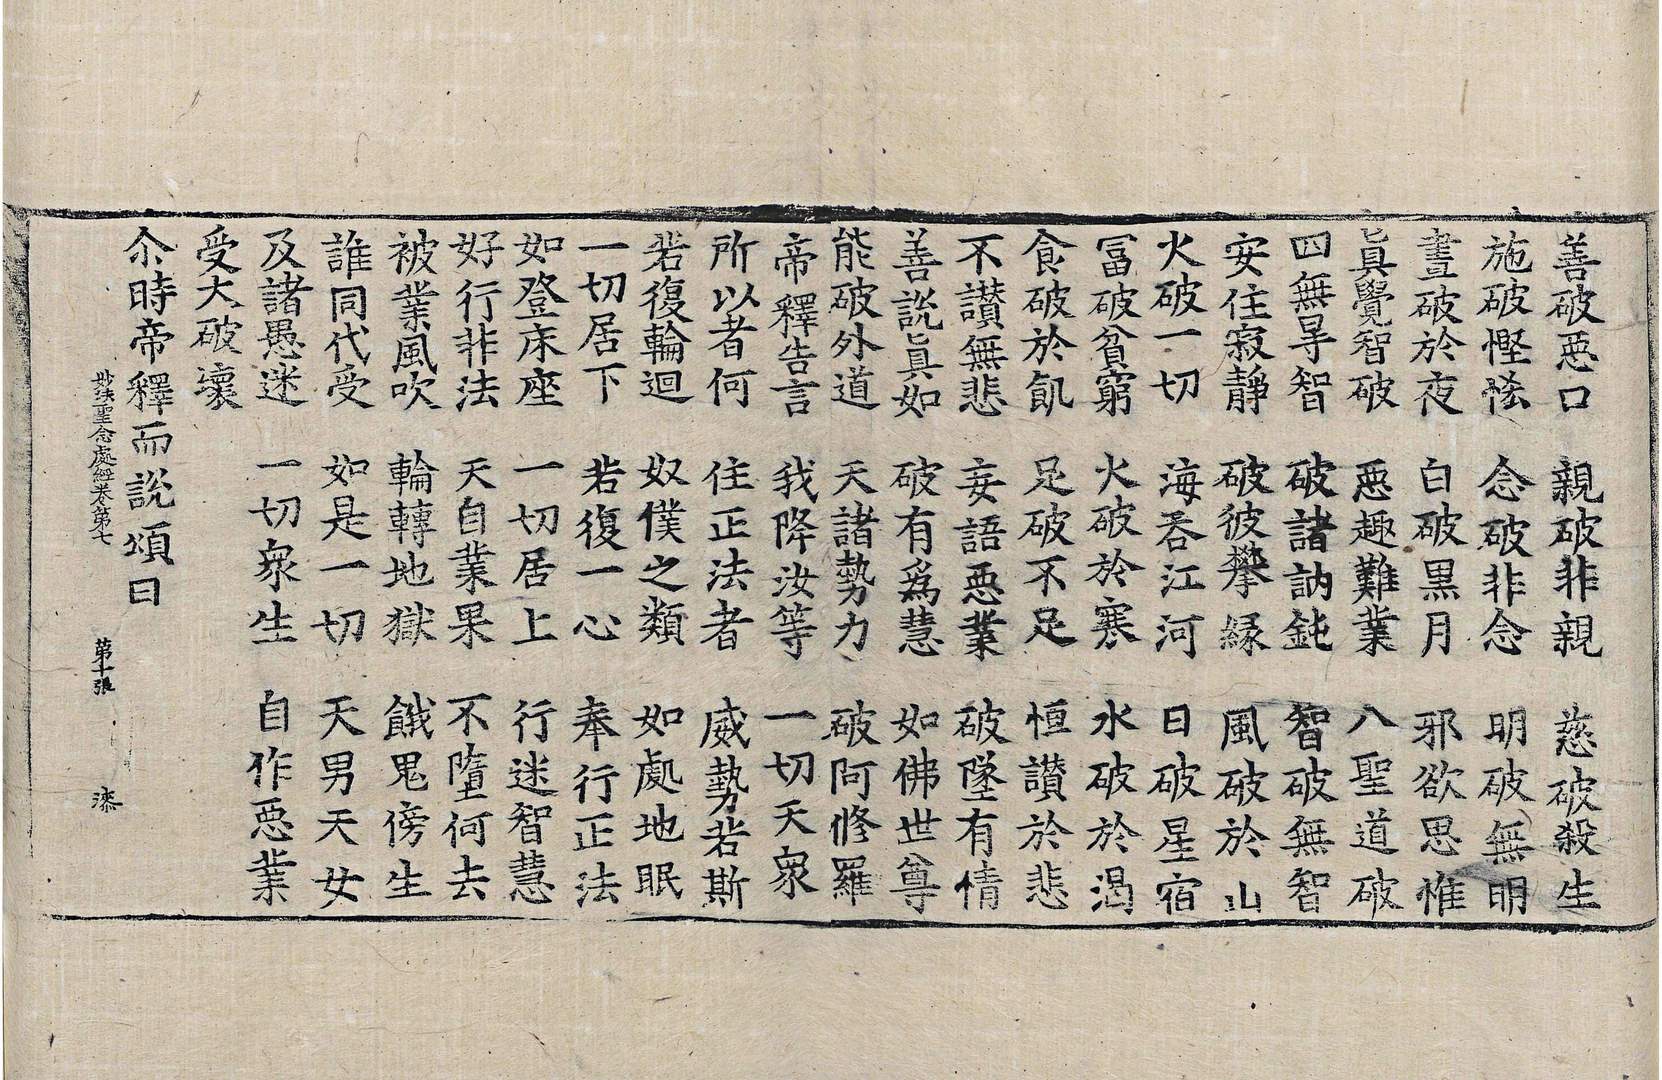 善破惡口　親破非親　慈破殺生
施破慳悋　念破非念　明破無明
晝破於夜　白破黒月　邪欲思惟
眞覺智破　惡趣難業　八聖道破
四無㝵智　破諸訥鈍　智破無智
安住寂靜　破彼攀縁　風破於山
火破一切　海吞江河　日破星宿
冨破貧窮　火破於寒　水破於渴
食破於飢　足破不足　恒讃於悲
不讃無悲　妄語惡業　破墜有情
善説眞如　破有爲慧　如佛世尊
能破外道　天諸勢力　破阿修羅
帝釋告言　我降汝等　一切天衆
所以者何　住正法者　威勢若斯
若復輪迴　奴僕之類　如處地眠
一切居下　若復一心　奉行正法
如登床座　一切居上　行迷智慧
好行非法　天自業果　不墮何去
被業風吹　輪轉地獄　餓鬼傍生
誰同代受　如是一切　天男天女
及諸愚迷　一切衆生　自作惡業
受大破壞
尒時帝釋而説頌曰
妙法聖念處經卷第七　第十張　漆